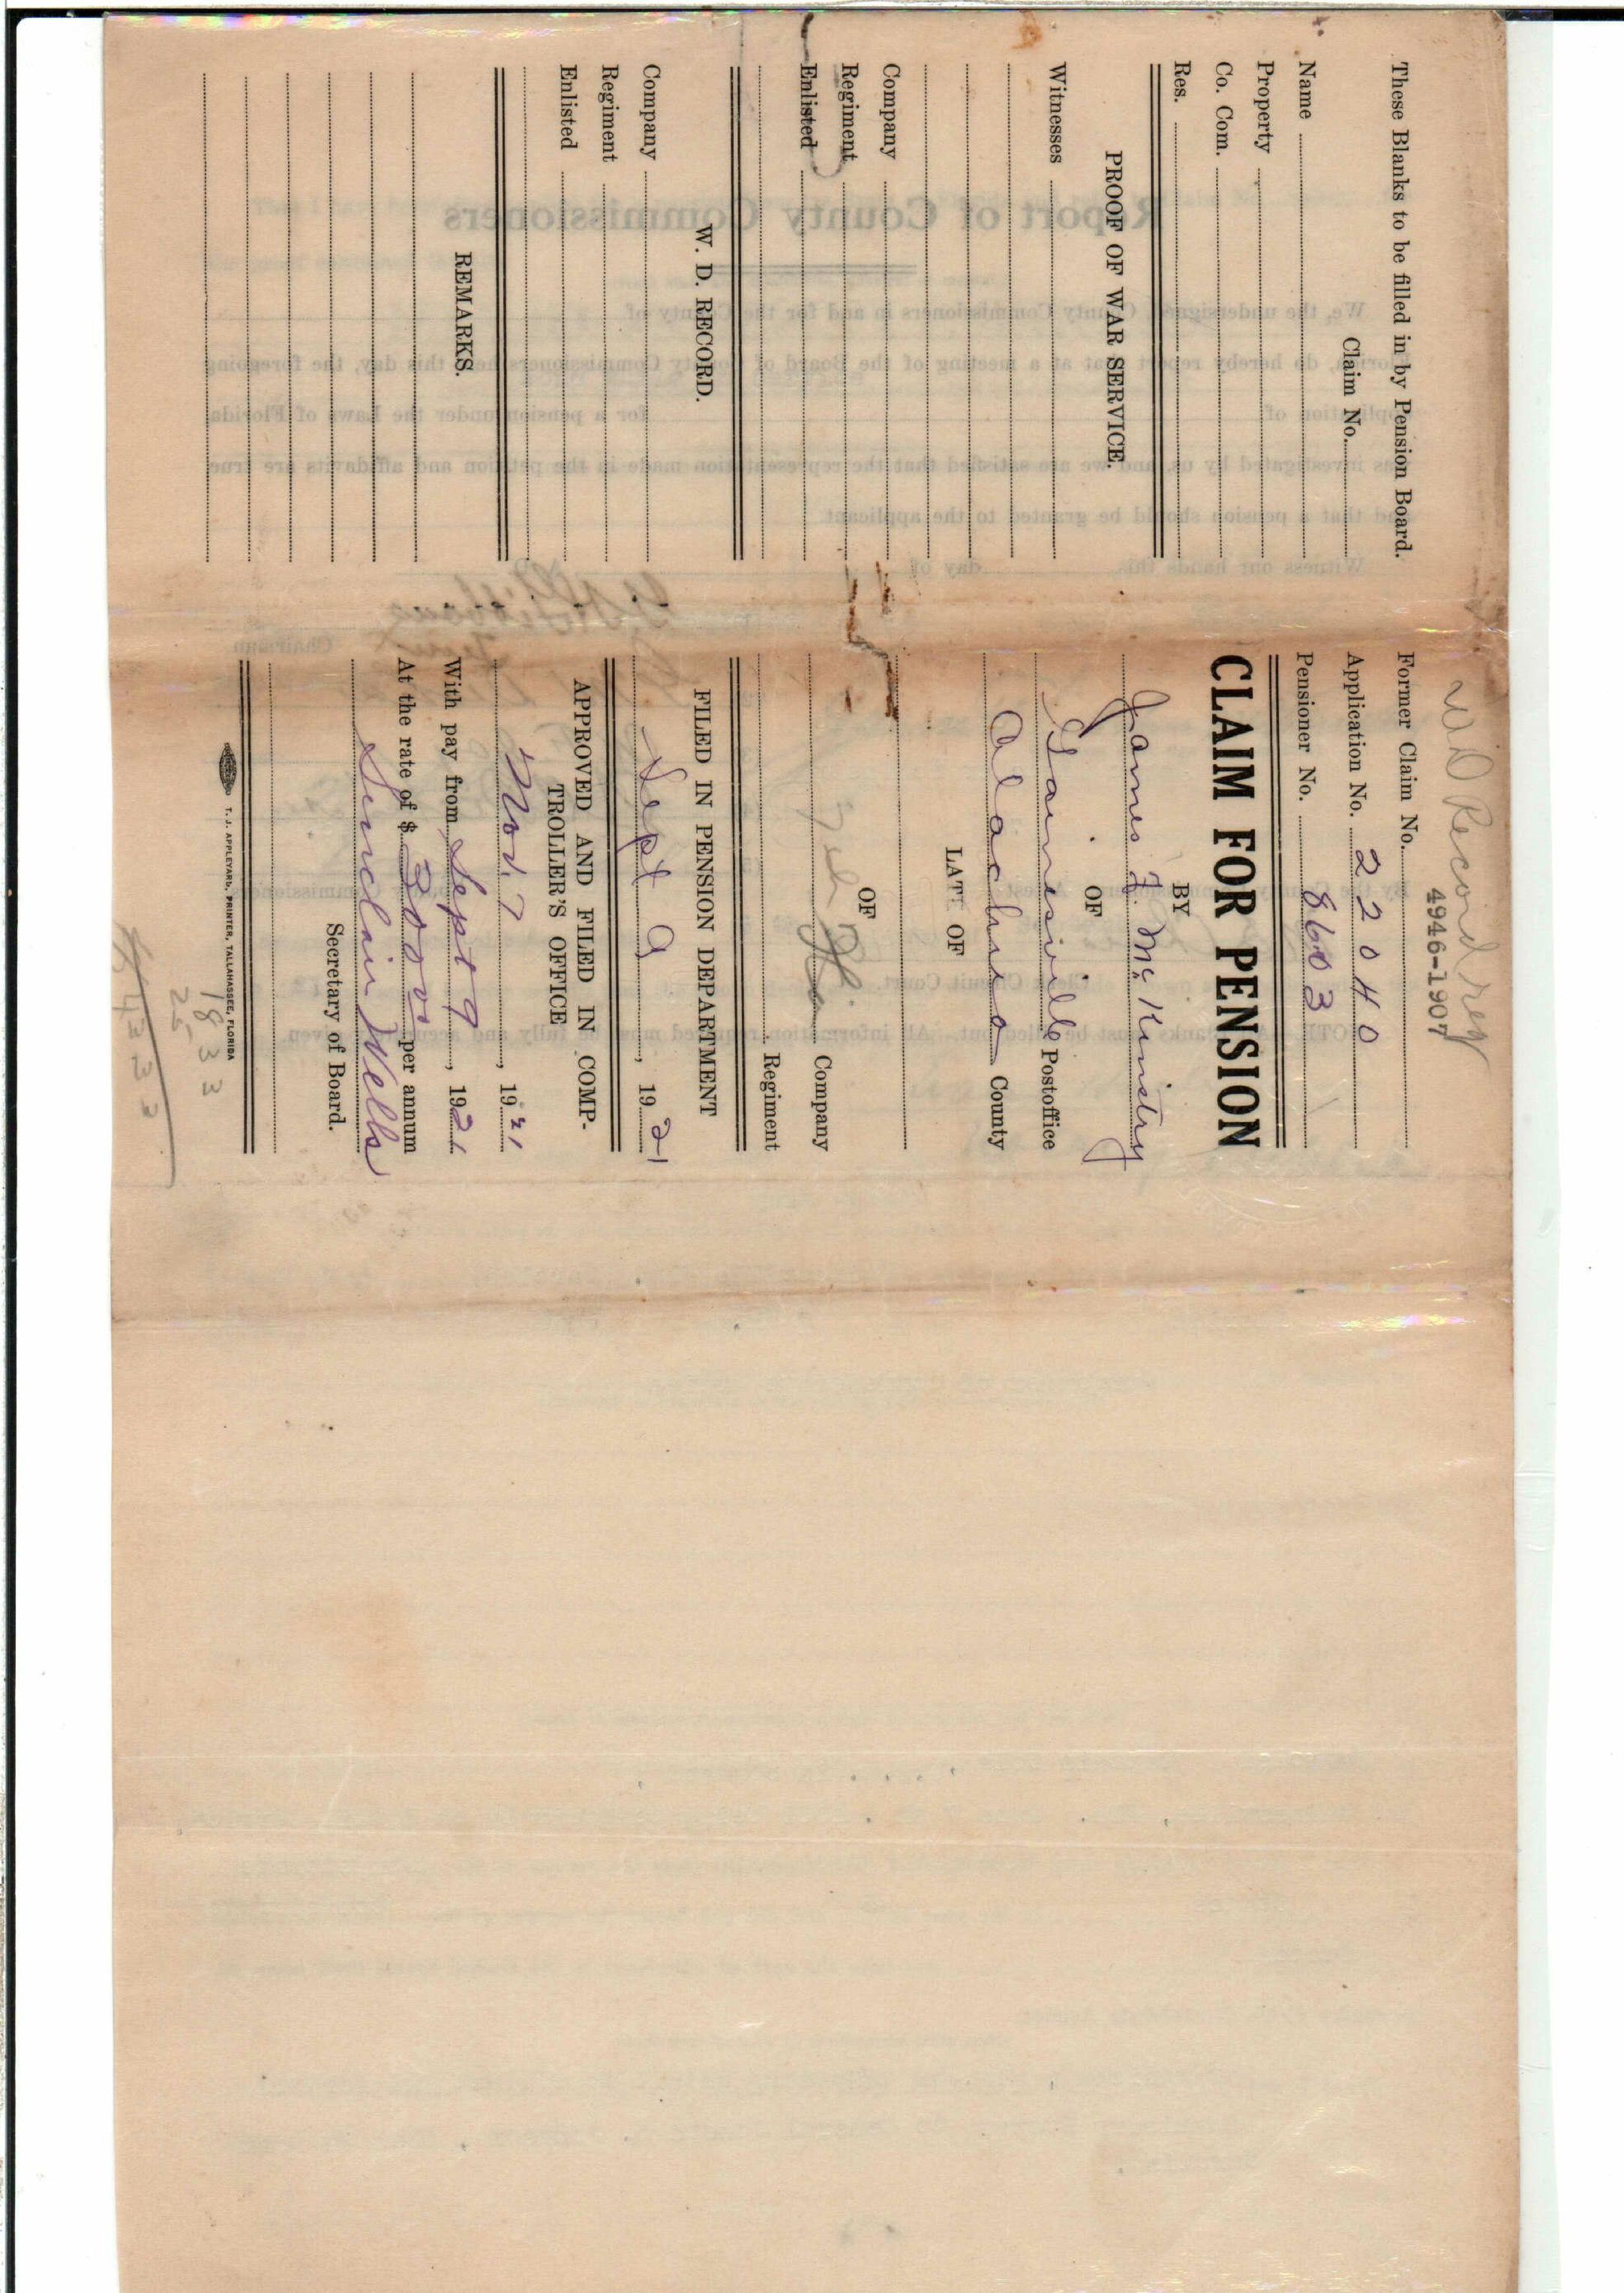 These Blanks to be filled in by Pension Board.
Claim No.
Name
Property
Co. Com.
Res.
PROOF OF WAR SERVICE.
Witnesses
Company
Regiment
Enlisted
W. D. RECORD.
Company
Regiment
Enlisted
REMARKS.
W D Record req
4946-1907
Former Claim No.
Application No. 22040
Pensioner No. 8603
CLAIM FOR PENSION
BY
James F. McKinstry
OF
Gainesville Postoffice
Alachua County
LATE OF
OF
Company
Regiment
FILED IN PENSION DEPARTMENT
Sept 9, 1921
APPROVED AND FILED IN COMP-
TROLLER'S OFFICE
Nov. 7, 1921
With pay from Sept 9, 1921
At the rate of $ 300 00 per annum
Sinclair Wells
Secretary of Board.
T. J. APPLEYARD, PRINTER, TALLAHASSEE, FLORIDA
18 33
25
43 33
Report of County Commissioners
We, the undersigned, County Commissioners in and for the County of
Florida, do hereby report that at a meeting of the Board of County Commissioners held this day, the foregoing
application of for a pension under the Laws of Florida
was investigated by us, and we are satisfied that the representation made in the petition and affidavits are true
and that a pension should be granted to the applicant
Witness our hands this day of
Chairman
Clerk Circuit Court.